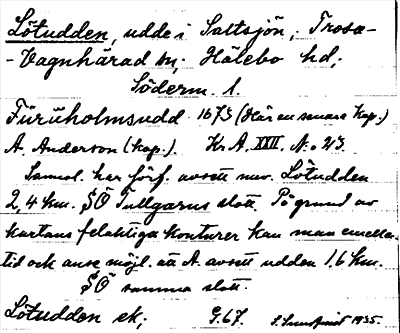 Lötudden, udde i Saltsjön, Trosa-
-Vagnhärad sn, Hölebo hd,
Söderm. l.
Furuholmsudd 1673 (Här en senare kop.)
A. Anderson (kop.). K. A. XXII. N:o 23
Sannol. har förf. avsett nuv. Lötudden
2,4 km. SÖ Tullgarns slott. På grund av
kartans felaktiga konturer kan man emeller-
tid och anse möjl. att A. avsett udden 1.6 km.
SÖ samma slott.
Lötudden ek; G.67. 1935